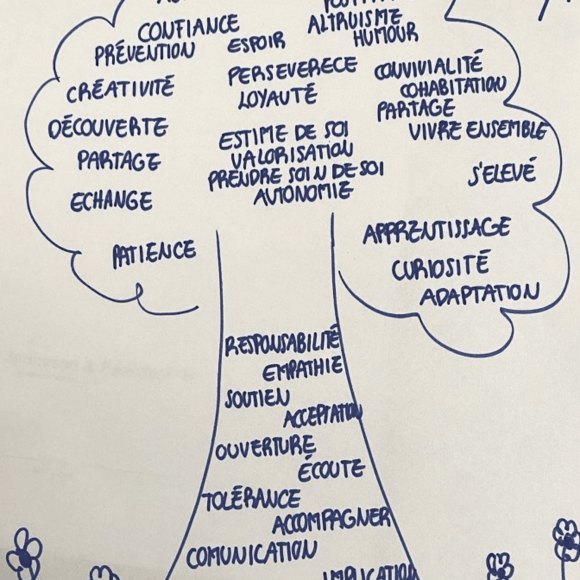 CONFIANCE
PRÉVENTION
ESPOIR
ALTRUISME
HUMOUR
CRÉATIVITÉ
PERSEVERECE
LOYAUTÉ
CONVIVIALITÉ
COHABITATION
PARTAGE
VIVRE ENSEMBLE
DÉCOUVERTE
ESTIME DE SOI
VALORISATION
PRENDRE SOIN DE SOI
AUTONOMIE
PARTAGE
S'ELEVÉ
ECHANGE
APPRENTISSAGE
CURIOSITÉ
ADAPTATION
PATIENCE
RESPONSABILITÉ
EMPATHIE
SOUTIEN
ACCEPTATION
OUVERTURE
ÉCOUTE
TOLÉRANCE
ACCOMPAGNER
COMUNICATION
IMPLICATION